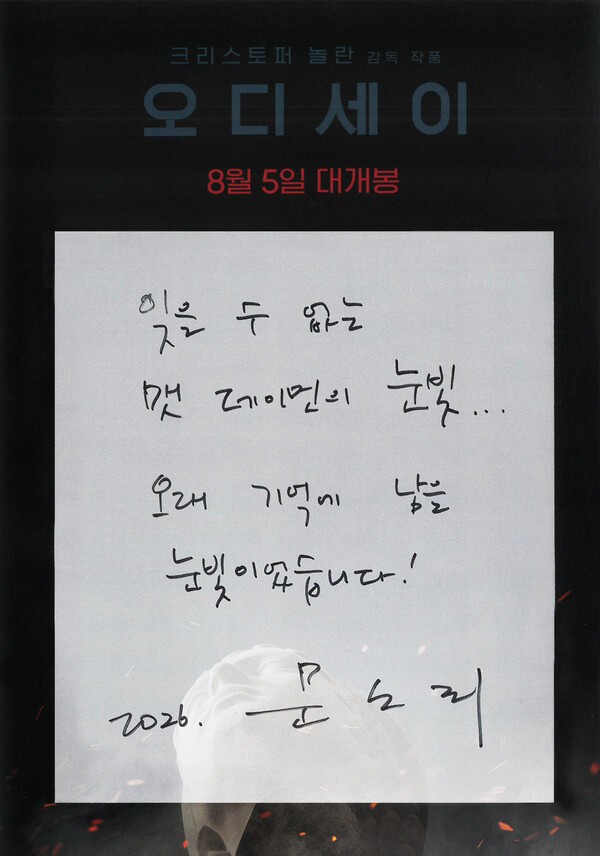 크리스토퍼 놀란 감독 작품
오디세이
8월 5일 대개봉
잊을 수 없는
맷 데이먼의 눈빛...
오래 기억에 남을
눈빛이었습니다!
2026. 문소리